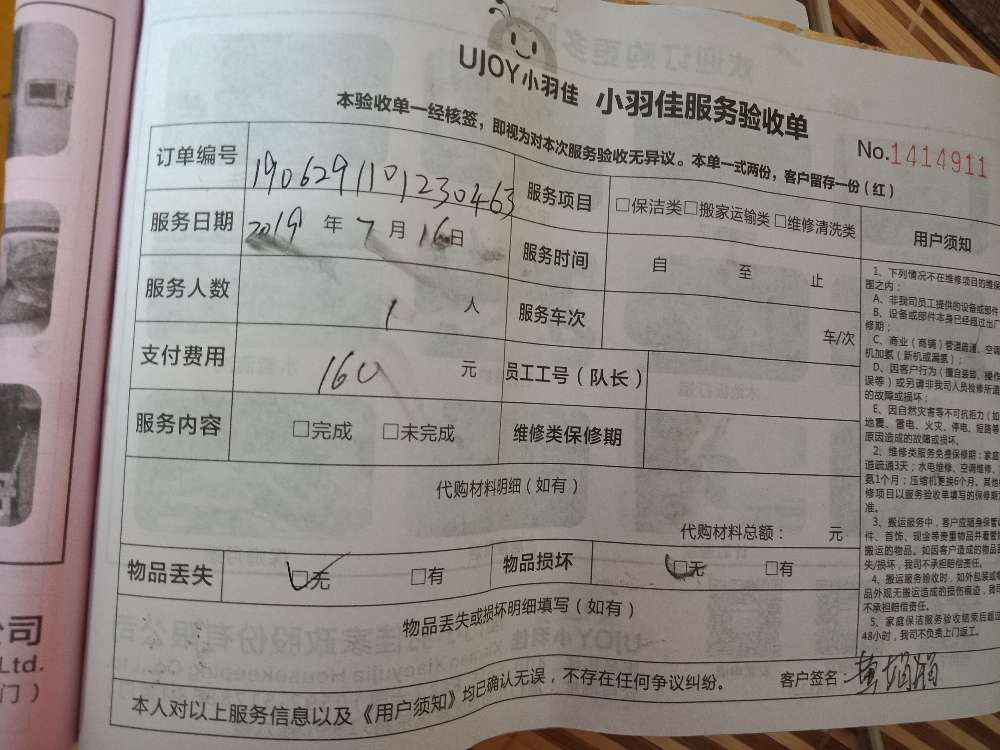 UJOY小羽佳
小羽佳服务验收单
本验收单一经核签，即视为对本次服务验收无异议。本单一式两份，客户留存一份（红）
No.1414911
订单编号 1906291101230463 服务项目 □保洁类□搬家运输类□维修清洗类 用户须知
服务日期 2019 年 7 月 16 日 服务时间 自 至 止
服务人数 1 人 服务车次 车/次
支付费用 160 元 员工工号（队长）
服务内容 □完成 □未完成 维修类保修期
代购材料明细（如有）
代购材料总额： 元
物品丢失 □无 □有 物品损坏 □无 □有
物品丢失或损坏明细填写（如有）
客户签名：
本人对以上服务信息以及《用户须知》均已确认无误，不存在任何争议纠纷。
1、下列情况不在维修项目的维保
围之内：
A、非我司员工提供的设备或部件
B、设备或部件本身已经超过出厂
修期；
C、商业（商铺）管道疏通、空调
机加氨（新机或漏氨）；
D、因客户行为（擅自装卸、操作
误等）或另请非我司人员检修所造
的故障或损坏；
E、因自然灾害等不可抗拒力（如
地震、雷电、火灾、停电、短路等
原因造成的故障或损坏。
2、维修类服务免费保修期：家庭
道疏通3天；水电维修、空调维修、
氨1个月；压缩机更换6个月。其他
修项目以服务验收单填写的保修期
准。
3、搬运服务中，客户应随身保管
件、首饰、现金等贵重物品并看管
搬运的物品。如因客户造成的物品
失/损坏，我司不承担赔偿责任。
4、搬运服务验收时，如外包装或
品外观无搬运造成的损伤痕迹，我司
不承担赔偿责任。
5、家庭保洁服务验收结束后超过
48小时，我司不负责上门返工。
公司
Ltd.
门）